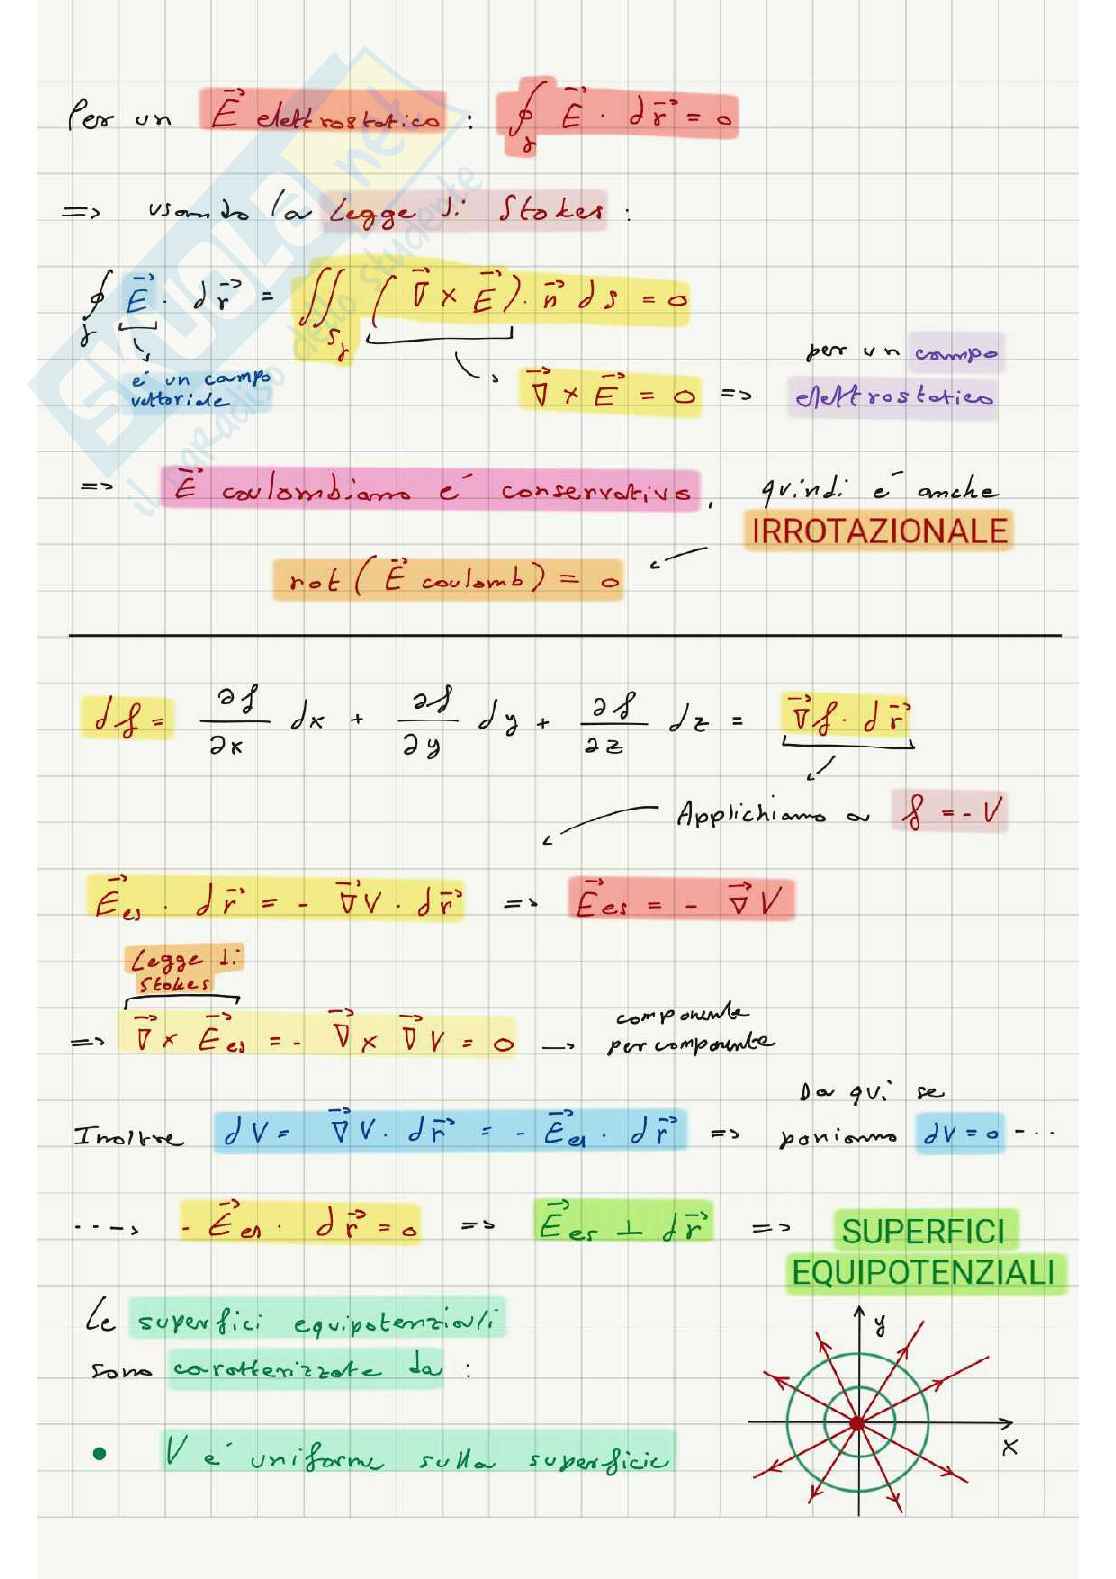 Per un E⃗ elettrostatico : ∮γ E⃗ · dr⃗ = 0
=> usando la Legge di Stokes :
∮γ E⃗ · dr⃗ = ∬Sγ (∇⃗ × E⃗) · n⃗ ds = 0
è un campo vettoriale
∇⃗ × E⃗ = 0 => per un campo elettrostatico
=> E⃗ coulombiano è conservativo, quindi è anche
IRROTAZIONALE
rot (E⃗ coulomb) = 0
df = ∂f/∂x dx + ∂f/∂y dy + ∂f/∂z dz = ∇⃗f · dr⃗
Applichiamo a f = - V
E⃗es · dr⃗ = - ∇⃗V · dr⃗ => E⃗es = - ∇⃗V
Legge di
Stokes
=> ∇⃗ × E⃗es = - ∇⃗ × ∇⃗V = 0 → componente
per componente
Da qui se
Inoltre dV = ∇⃗V · dr⃗ = - E⃗es · dr⃗ => poniamo dV = 0 ...
...→ - E⃗es · dr⃗ = 0 => E⃗es ⊥ dr⃗ => SUPERFICI
EQUIPOTENZIALI
Le superfici equipotenziali
sono caratterizzate da :
• V è uniforme sulla superficie
y
x
SKUOLA.net
il paradiso dello studente